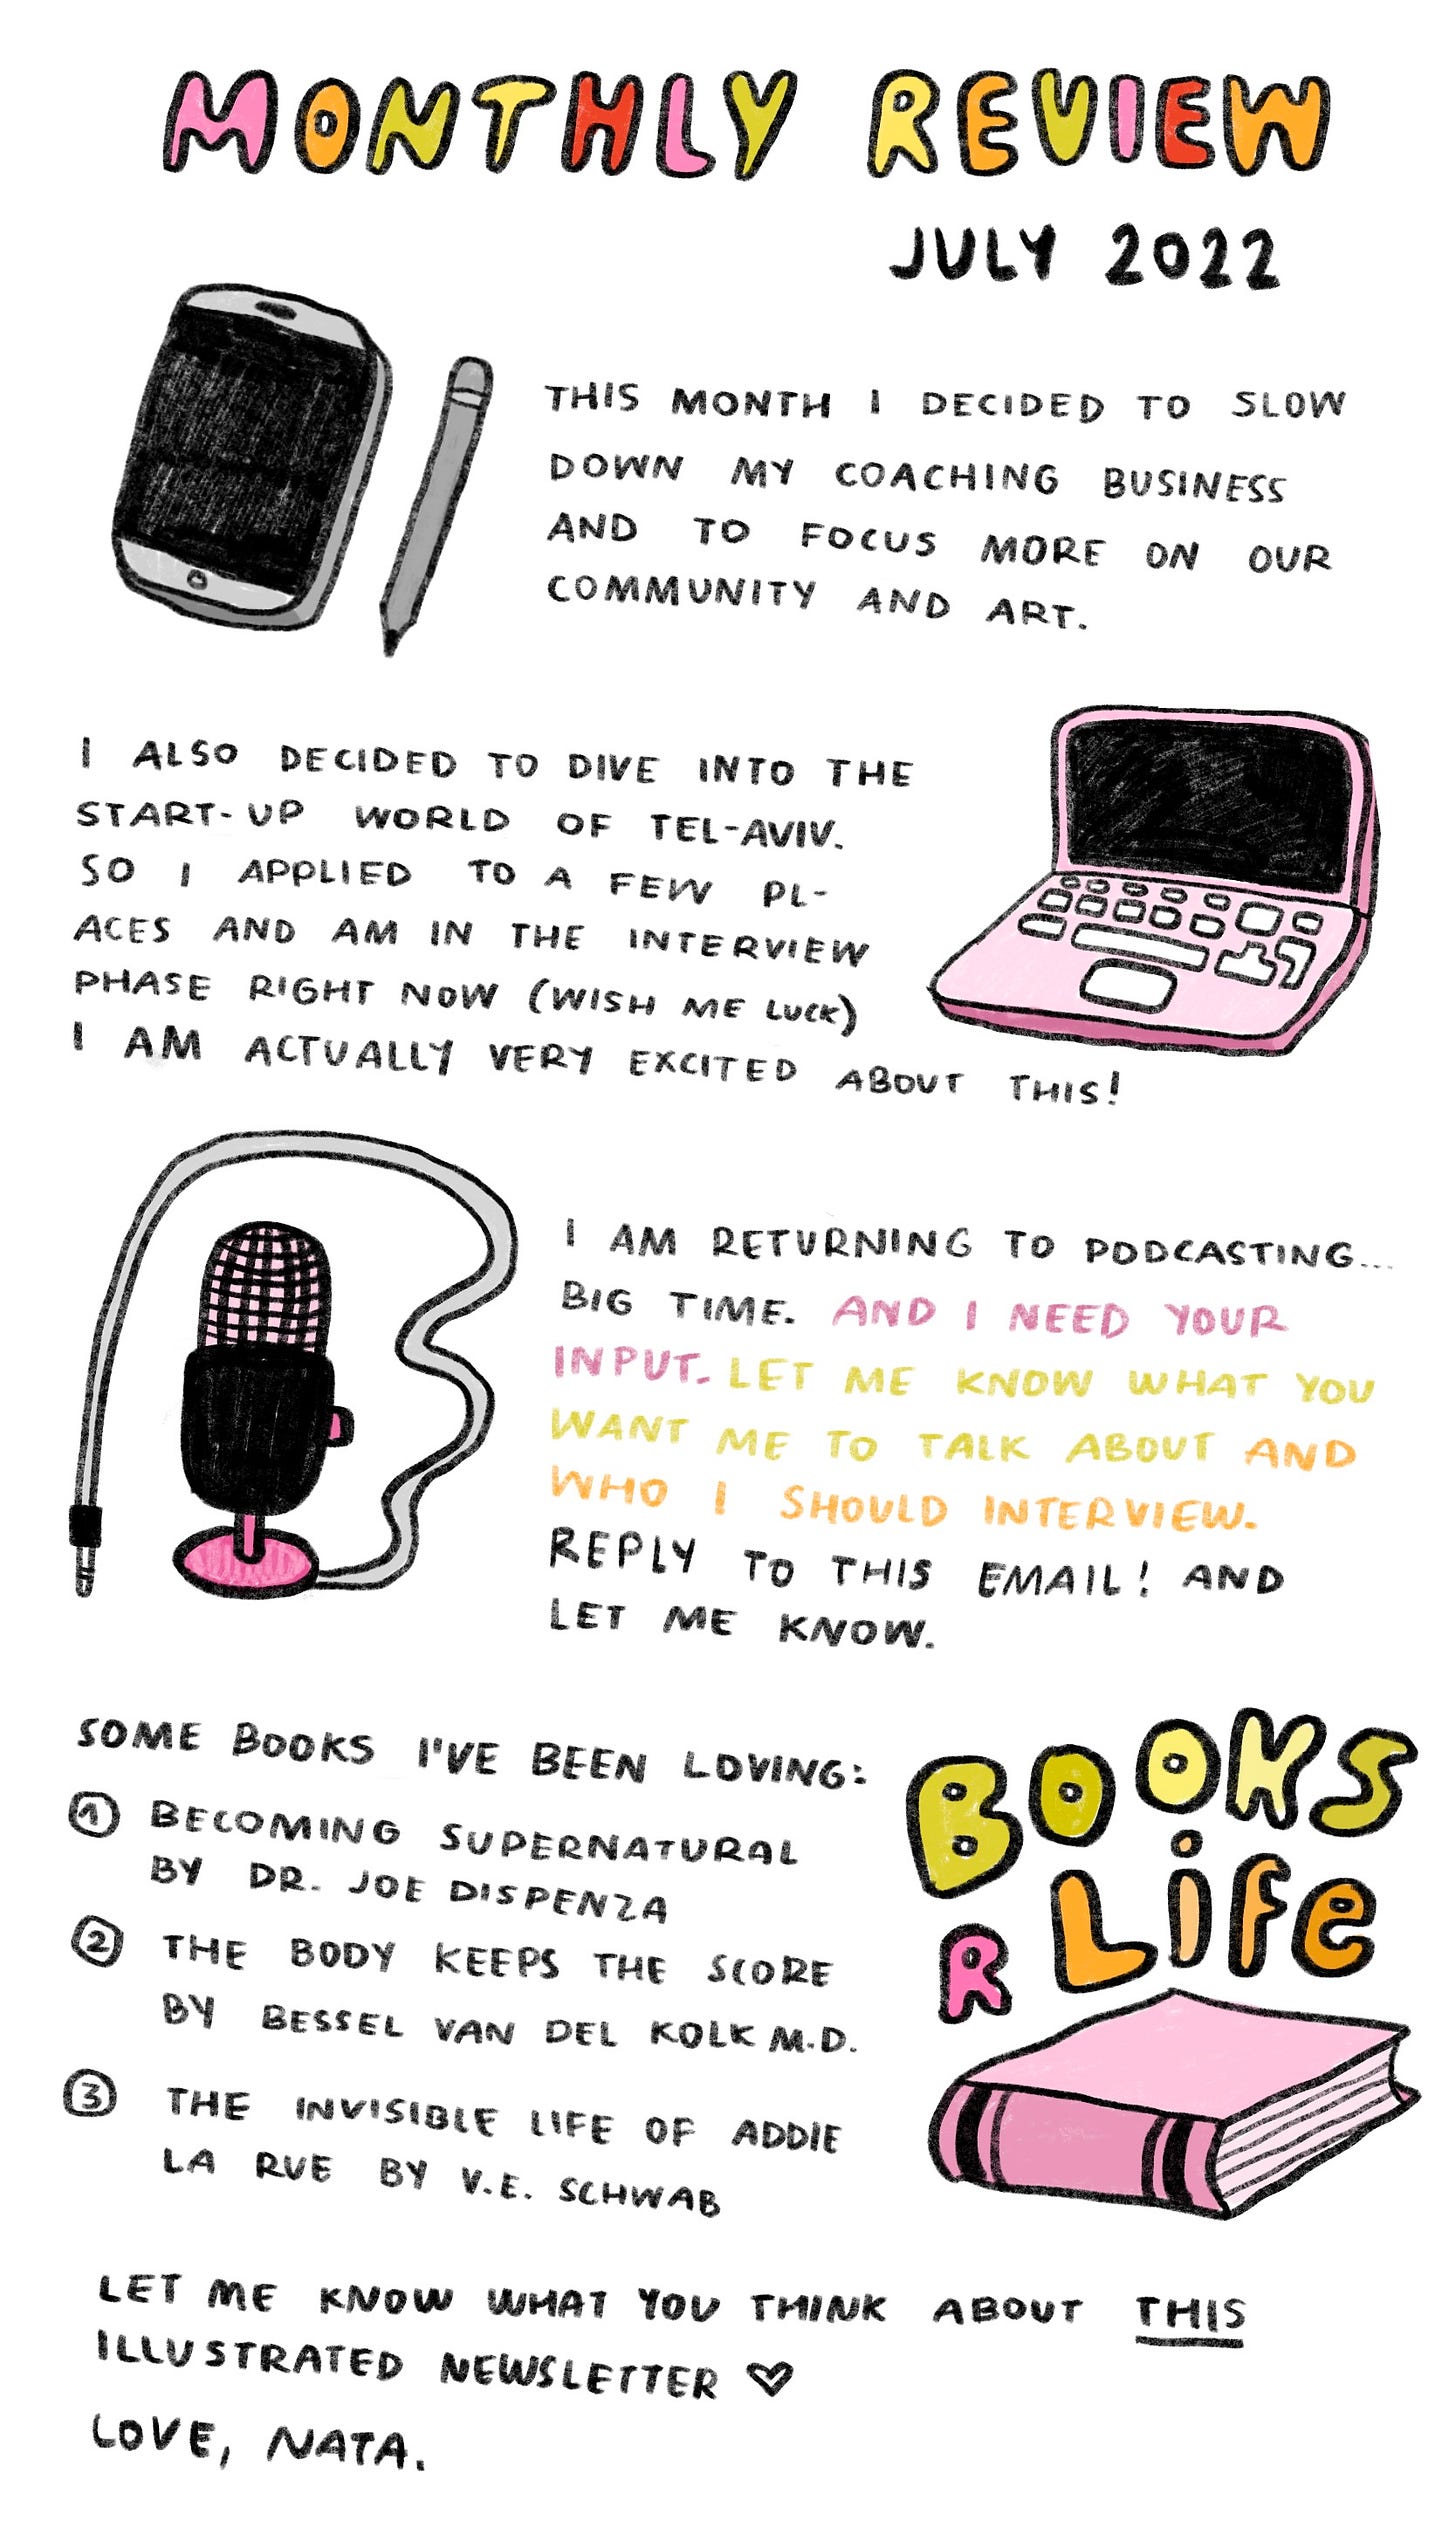 MONTHLY REVIEW
JULY 2022
THIS MONTH I DECIDED TO SLOW
DOWN MY COACHING BUSINESS
AND TO FOCUS MORE ON OUR
COMMUNITY AND ART.
I ALSO DECIDED TO DIVE INTO THE
START-UP WORLD OF TEL-AVIV.
SO I APPLIED TO A FEW PL-
ACES AND AM IN THE INTERVIEW
PHASE RIGHT NOW (WISH ME LUCK)
I AM ACTUALLY VERY EXCITED ABOUT THIS!
I AM RETURNING TO PODCASTING...
BIG TIME. AND I NEED YOUR
INPUT. LET ME KNOW WHAT YOU
WANT ME TO TALK ABOUT AND
WHO I SHOULD INTERVIEW.
REPLY TO THIS EMAIL! AND
LET ME KNOW.
SOME BOOKS I'VE BEEN LOVING:
1 BECOMING SUPERNATURAL
BY DR. JOE DISPENZA
2 THE BODY KEEPS THE SCORE
BY BESSEL VAN DEL KOLK M.D.
3 THE INVISIBLE LIFE OF ADDIE
LA RUE BY V.E. SCHWAB
BOOKS
R LiFe
LET ME KNOW WHAT YOU THINK ABOUT THIS
ILLUSTRATED NEWSLETTER ♡
LOVE, NATA.